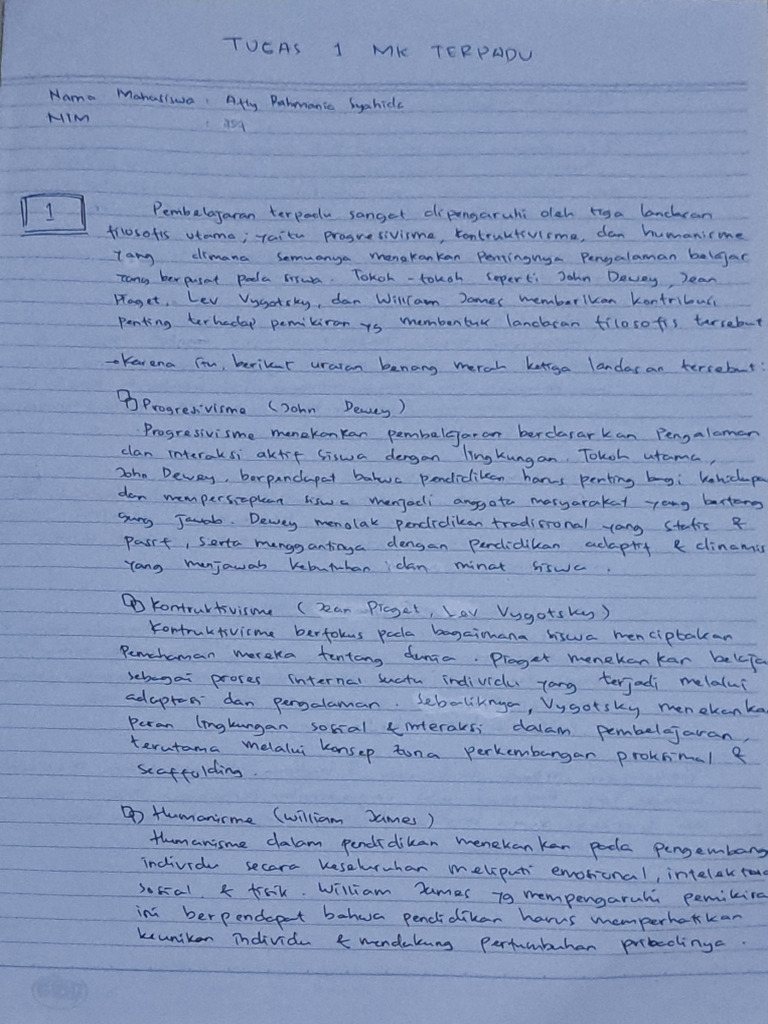 TUGAS 1 MK TERPADU
Nama Mahasiswa : Afty Rahmania Syahida
NIM :
1 Pembelajaran terpadu sangat dipengaruhi oleh tiga landasan
filosofis utama; yaitu progresivisme, kontruktivisme, dan humanisme
yang dimana semuanya menekankan pentingnya pengalaman belajar
yang berpusat pada siswa. Tokoh-tokoh seperti John Dewey, Jean
Piaget, Lev Vygotsky, dan William James memberikan kontribusi
penting terhadap pemikiran yg membentuk landasan filosofis tersebut
→ Karena itu, berikut uraian benang merah ketiga landasan tersebut:
Progresivisme (John Dewey)
Progresivisme menekankan pembelajaran berdasarkan Pengalaman
dan interaksi aktif siswa dengan lingkungan. Tokoh utama,
John Dewey, berpendapat bahwa pendidikan harus penting bagi kehidupa
dan mempersiapkan siswa menjadi anggota masyarakat yang bertang
gung jawab. Dewey menolak pendidikan tradisional yang statis &
pasif, serta menggantinya dengan pendidikan adaptif & dinamis
yang menjawab kebutuhan dan minat siswa.
Kontruktivisme (Jean Piaget, Lev Vygotsky)
Kontruktivisme berfokus pada bagaimana siswa menciptakan
pemahaman mereka tentang dunia. Piaget menekankan belaja
sebagai proses internal suatu individu yang terjadi melalui
adaptasi dan pengalaman. Sebaliknya, Vygotsky menekanka
peran lingkungan sosial & interaksi dalam pembelajaran,
terutama melalui konsep zona perkembangan proksimal &
scaffolding.
Humanisme (William James)
Humanisme dalam pendidikan menekankan pada pengembang
individu secara keseluruhan meliputi emosional, intelektua
sosial & fisik. William James yg mempengaruhi pemikira
ini berpendapat bahwa pendidikan harus memperhatikan
keunikan individu & mendukung pertumbuhan pribadinya.